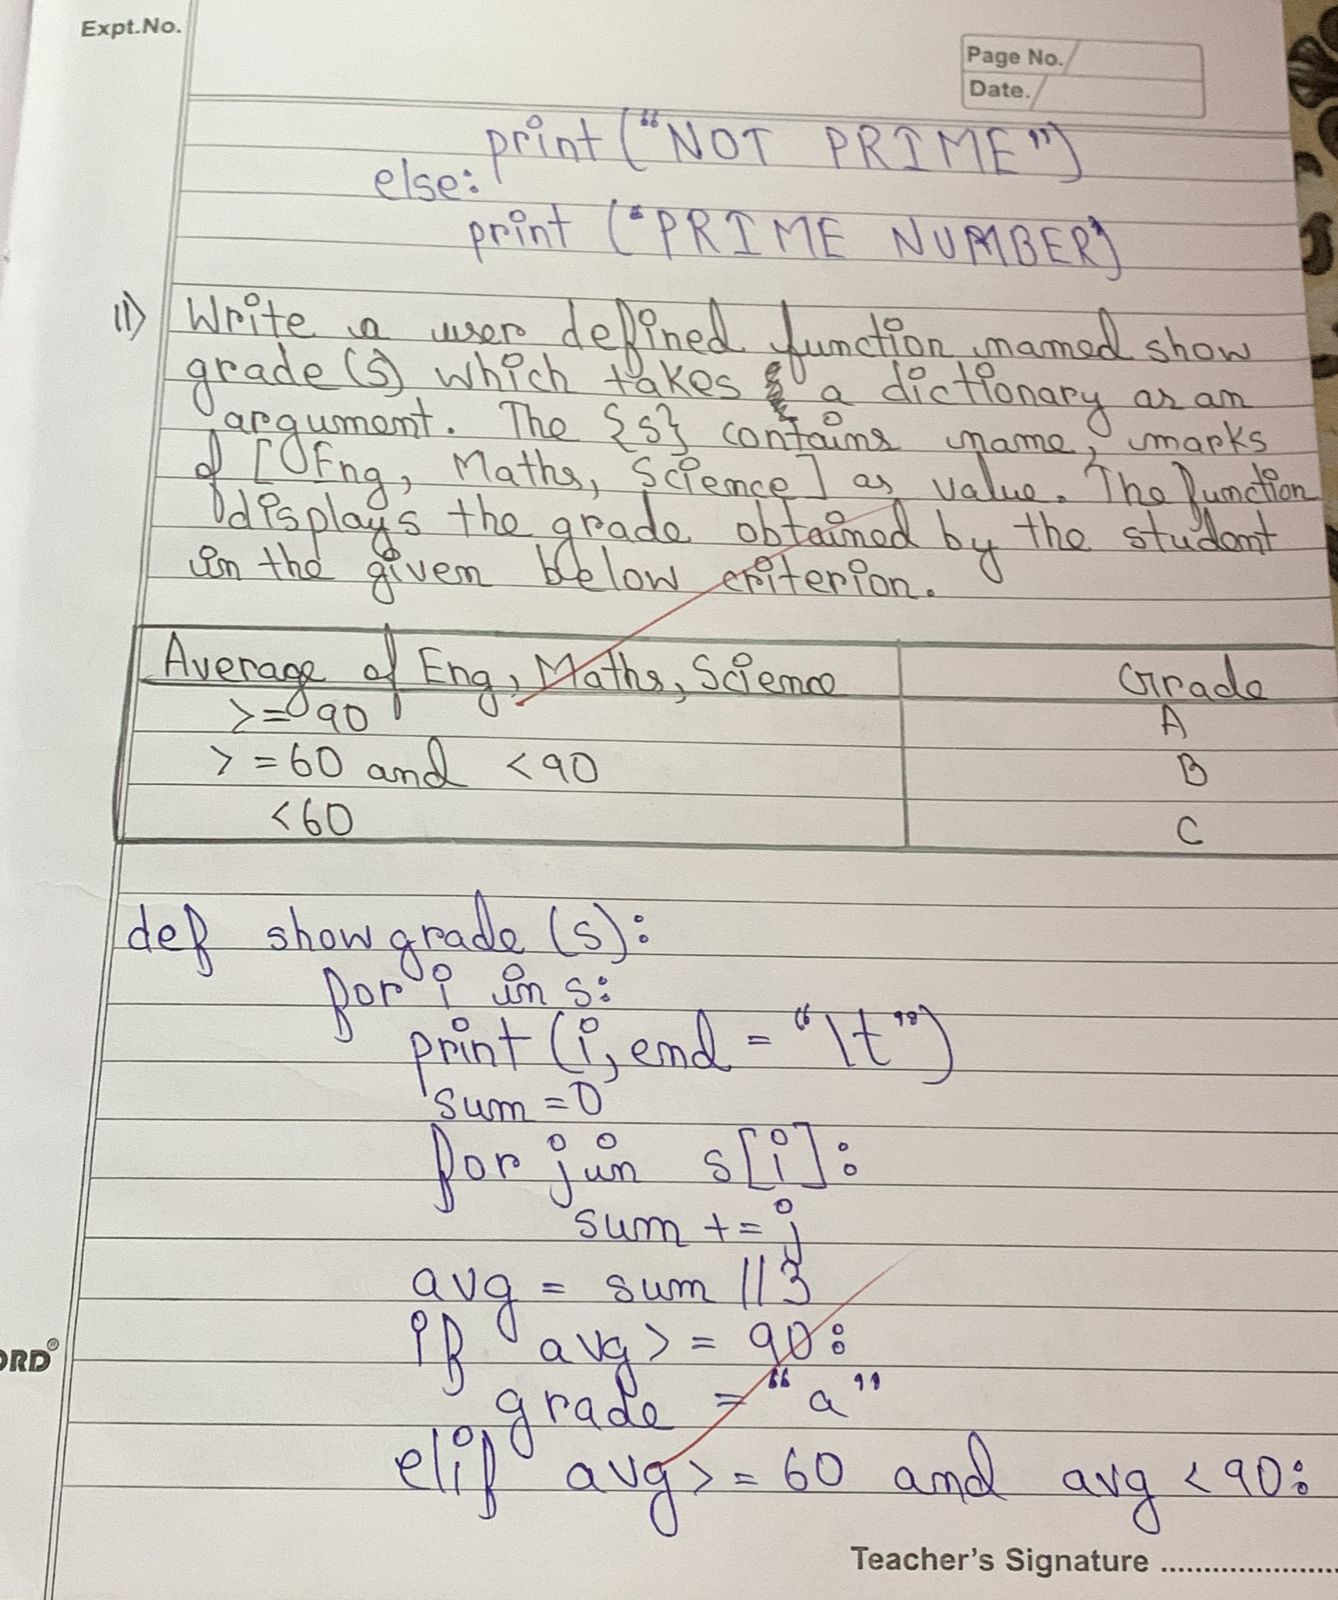 Expt.No.
Page No.
Date.
print ("NOT PRIME")
else:
print ("PRIME NUMBER")
11) Write a user defined function named show
grade(s) which takes a dictionary as an
argument. The {s} contains name, marks
of [Eng, Maths, Science] as value. The function
displays the grade obtained by the student
in the given below criterion.
Average of Eng, Maths, Science Grade
>= 90 A
>= 60 and <90 B
<60 C
def showgrade (s):
for i in s:
print (i, end = "\t")
sum = 0
for j in s[i]:
sum += j
avg = sum //3
if avg >= 90:
grade = "a"
elif avg >= 60 and avg < 90:
ORD®
Teacher's Signature ....................